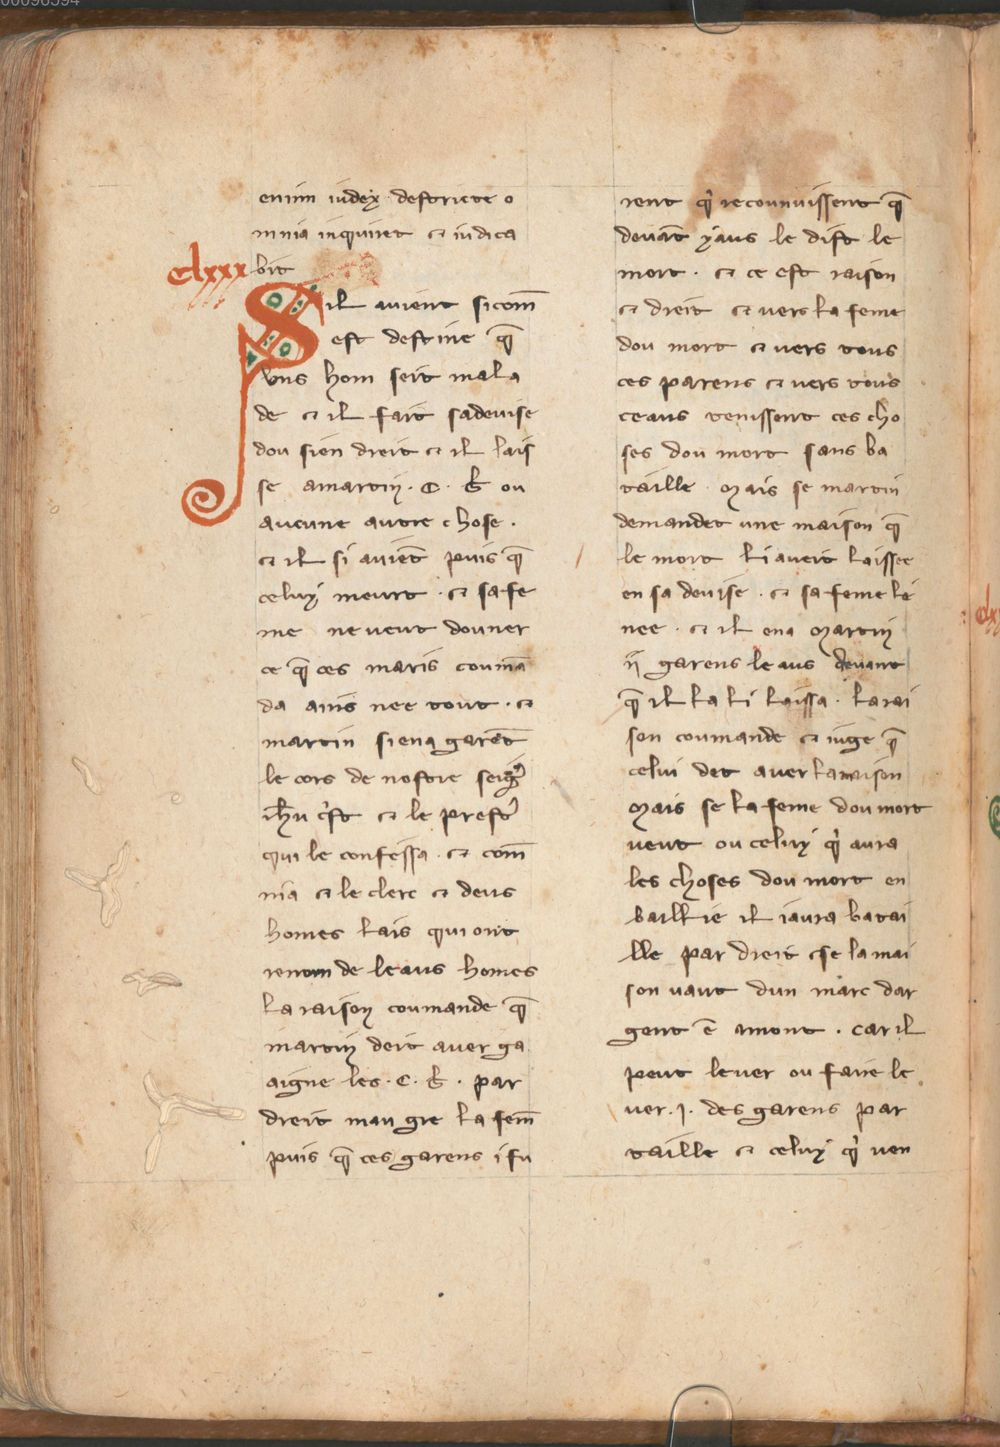 enim iudex destriete o
mnia inquiret ⁊ iudica
clxxx bit
Sil auient sicom̄
est destine q̄
vns hom seit mala
de ⁊ il fait sadeuise
dou sien dreit ⁊ il lais
se amartin · C · b̄ ou
aucune autre chose ·
⁊ il si auiēt puis q̄
celuy meurt · ⁊ safe
me ne veut douner
ce q̄ ces maris coumā
da ains nee tout · ⁊
martin siena garēt
le cors de nostre seigr̄
ih̄u c̓st ⁊ le prestr̓
qui le confessa · ⁊ com̄
nia ⁊ le clerc ⁊ deus
homes lais qui ont
renom de leaus homes
la raison coumande q̄
martin deit auer ga
aigne les · C · b̄ · par
dreit mau gre la fem̄
puis q̄ ces garens ifu
rent qͥ reconnuissent q̄
deuāt yaus le dist le
mort · ⁊ ce est raison
⁊ dreit ⁊ vers la feme
dou mort ⁊ vers tous
ces parens ⁊ vers tous
ceaus tenissent ces cho
ses dou mort sans ba
taille Mais se martin
demandet une maison q̄
le mort li aueit laissee
en sa deuise · ⁊ sa feme le
nee · ⁊ il ena Martin
ij garens leaus deuant
q̄ il la li laissa · la rai
son coumande ⁊ iuge q̄
celui det auer lamaison
Mais se la feme dou mort
veut ou celuy qͥ aura
les choses dou mort en
baillie il iaura batai
lle par dreit cse la mai
son vaut dun marc dar
gent ē amont · car il
peut leuer ou faire le
uer · j · des garens par
taille ⁊ celuy qͥ ven